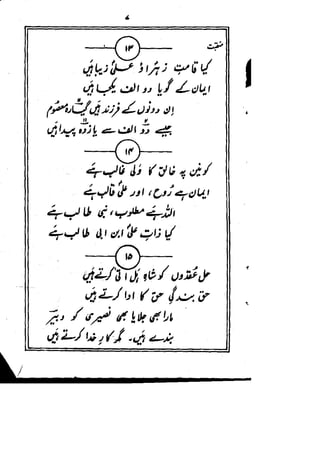 منقبت
۱۳
کیا قامتِ زہرا و علی زیبا ہیں
ایمان کے گویا دو الف یکجا ہیں
ان دونوں کے فرزند ہیں گیارہ معصوم
جیسے دو الف سے یازدہ پیدا ہیں
۱۴
کونین پہ خالق کا ولی غالب ہے
ایمان ہے روح، اور علی قالب ہے
اللہ ہے مطلوب، نبی طالب ہے
کیا ذات علی ابن ابی طالب ہے
۱۵
حل عقدوں کو شاہِ ہل اتٰی کرتے ہیں
حق بندگیِ حق کا ادا کرتے ہیں
مارا بھی جلایا بھی نصیری کو دبیر
بندے ہیں۔ مگر کارِ خدا کرتے ہیں